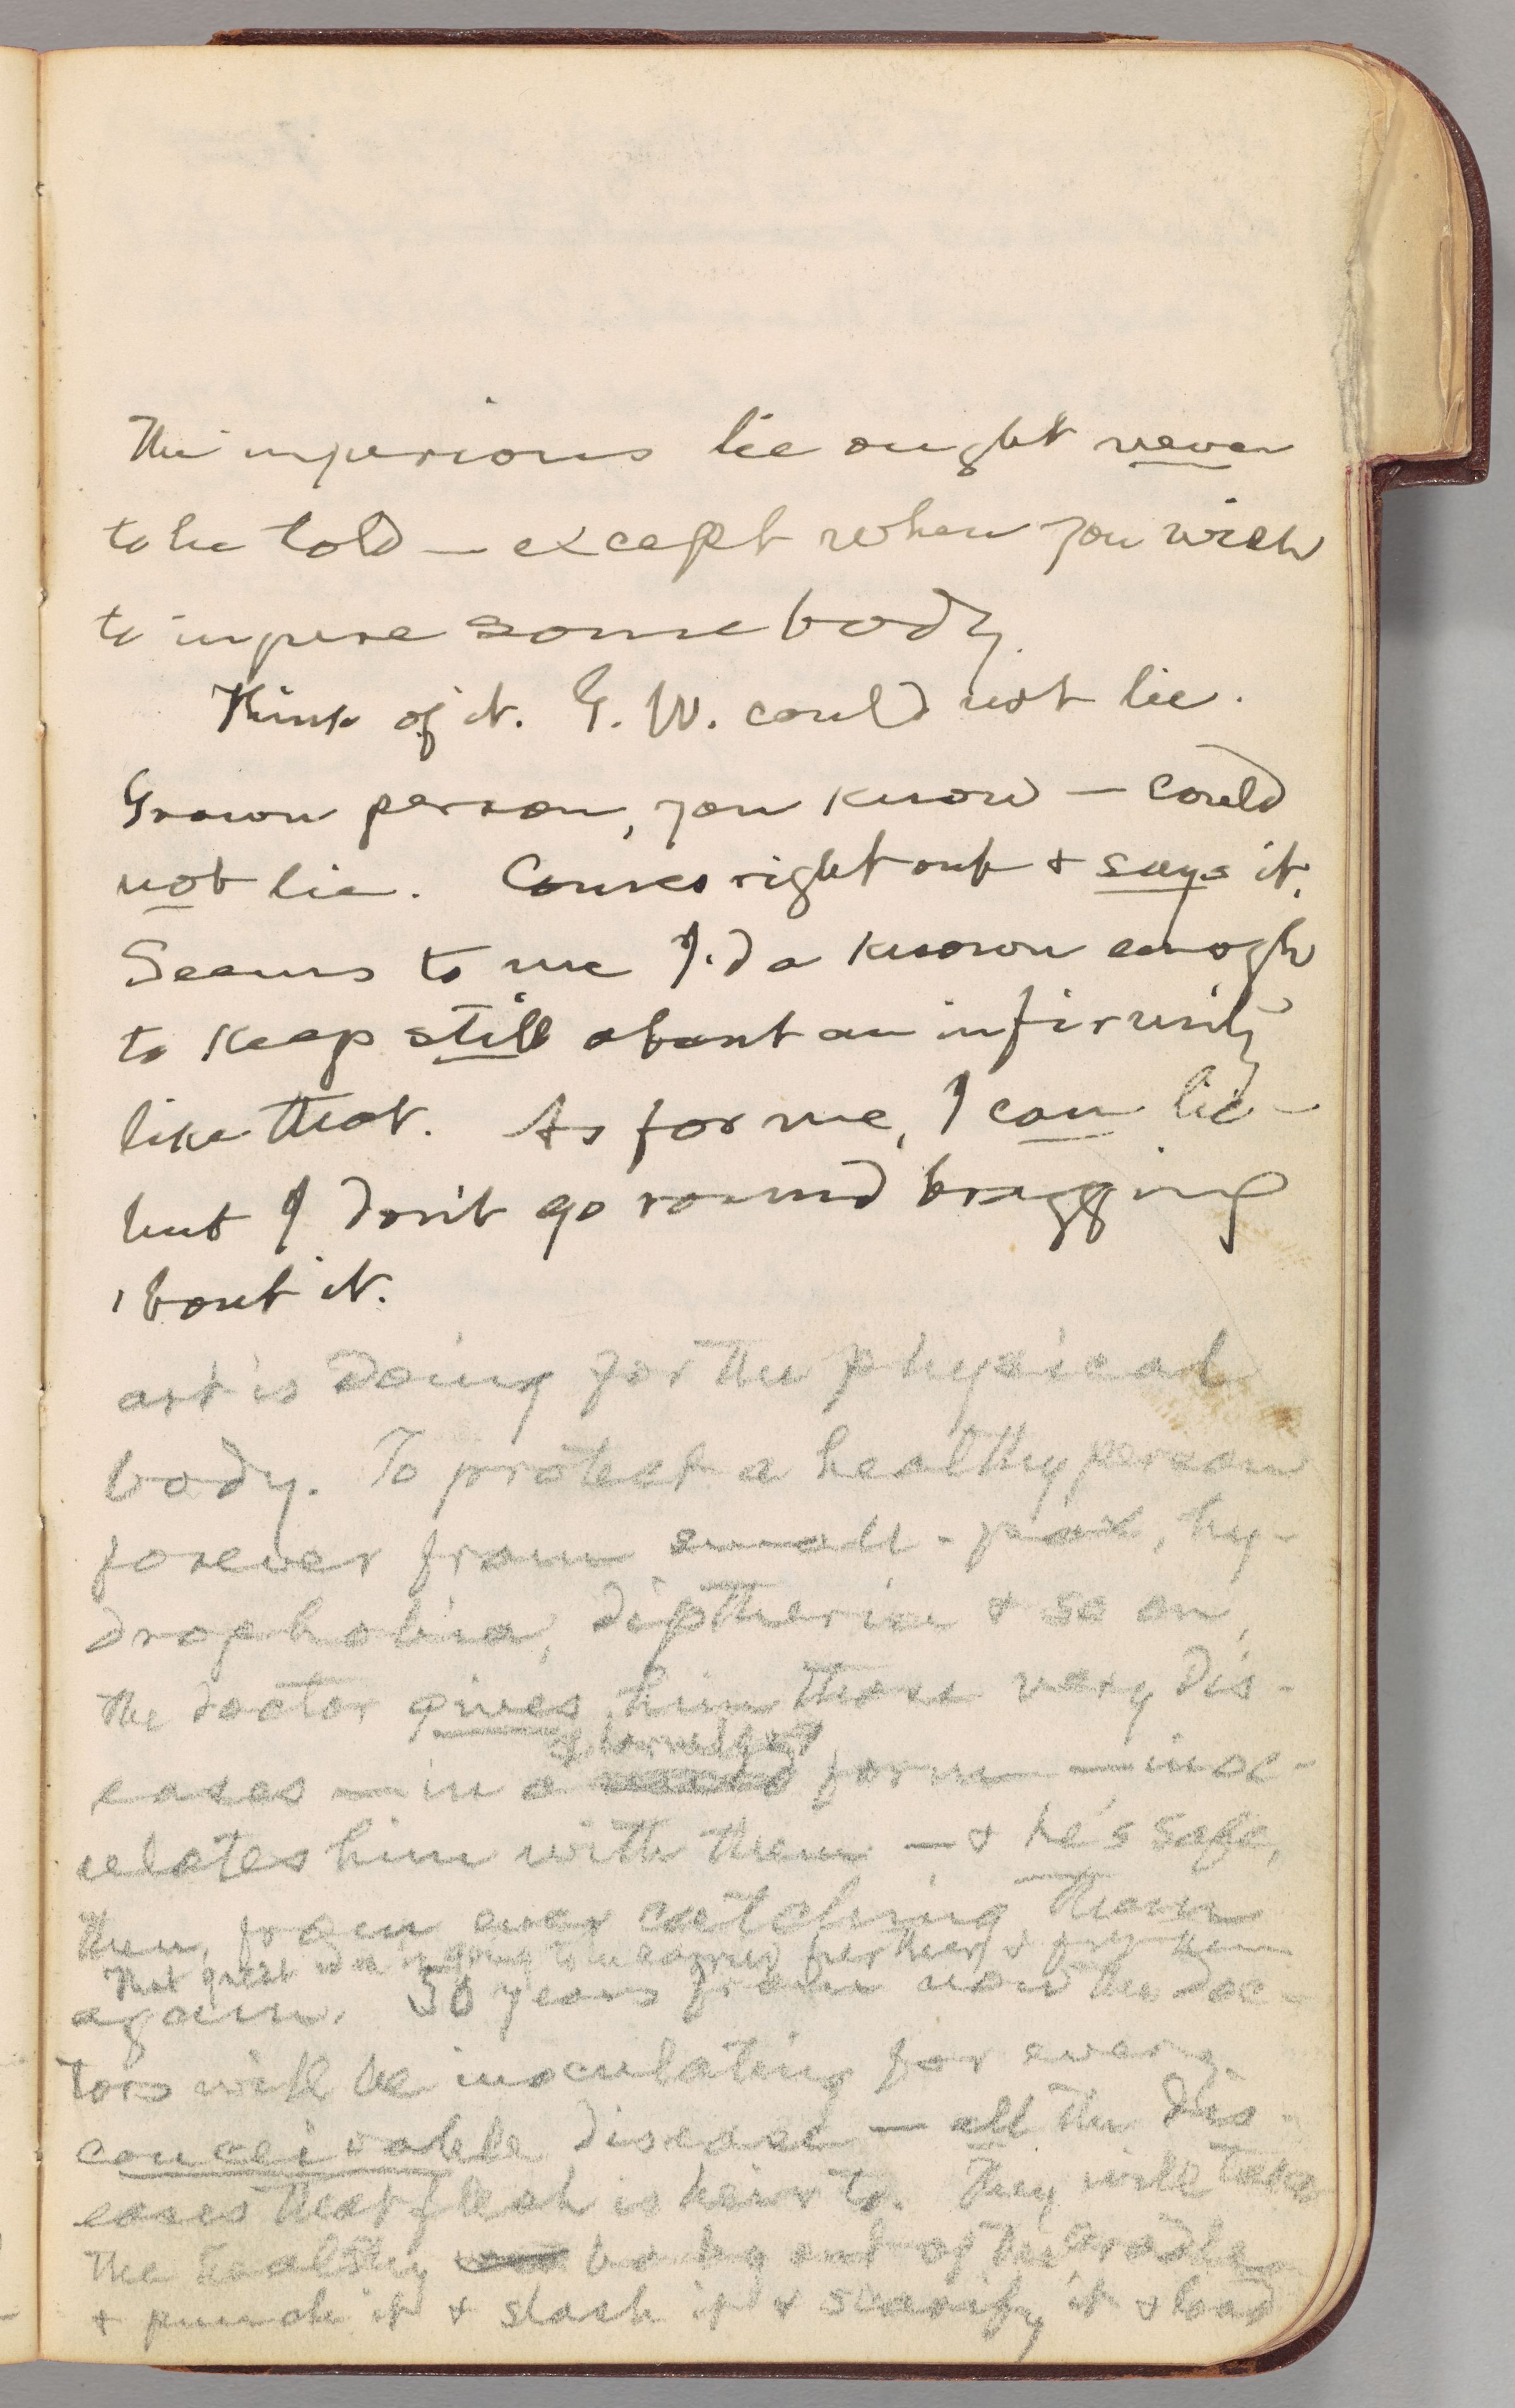 The injurious lie ought never
to be told — except when you wish
to injure somebody.
Think of it. G. W. could not lie.
Grown person, you know — could
not lie. Comes right out & says it.
Seems to me I'd a known enough
to keep still about an infirmity
like that. As for me, I can lie —
but I don't go round bragging
'bout it.
art is doing for the physical
body. To protect a healthy person
forever from small-pox, hy-
drophobia, diptheria & so on,
the doctor gives him those very dis-
eases — in a form — inoc-
ulates him with them — & he's safe,
then, from ever catching them
That great idea is going to be carried further & further
again. 50 years from now the doc-
tors will be inoculating for every
conceivable disease — all the dis-
eases that flesh is heir to. They will take
the healthy baby out of the cradle
& punch it & slash it & scarify it & load